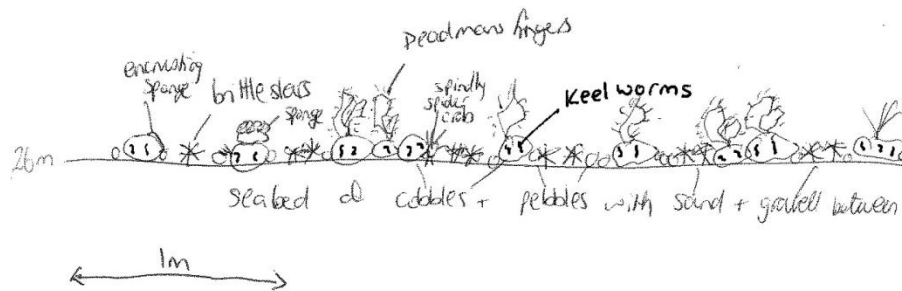 Deadmans fingers
encrusting
sponge
brittlestars
sponge
spindly
spider
crab
Keel worms
26m
seabed of cobbles + pebbles with sand + gravell between
1m